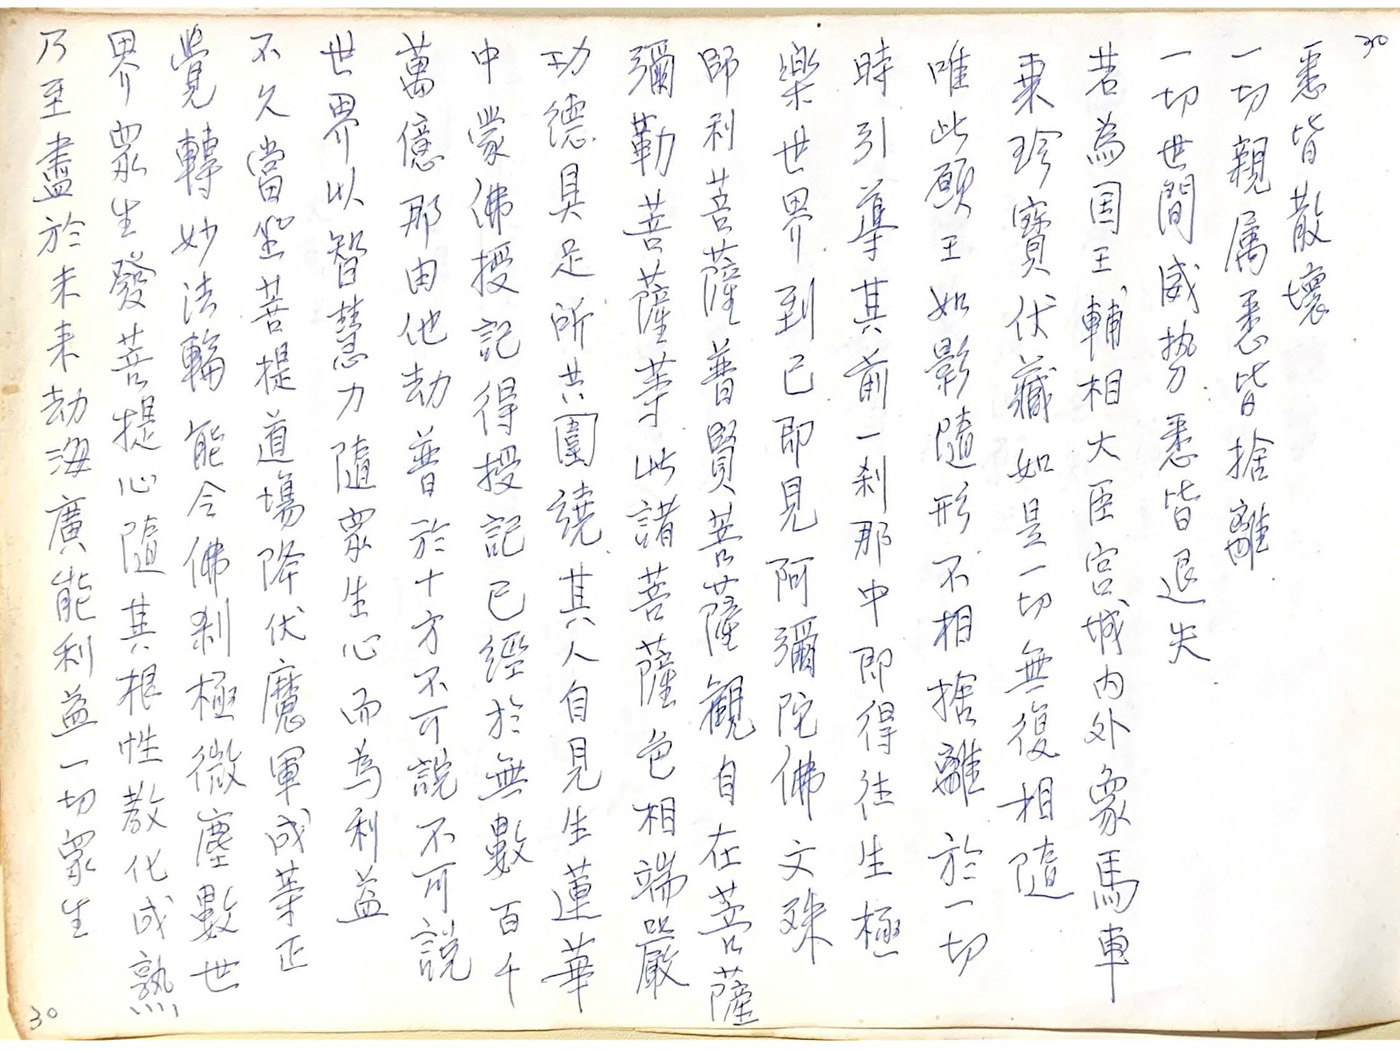 30
悉皆散壞
一切親属悉皆捨離
一切世間威势悉皆退失
若為国王輔相大臣宮城内外象馬車
乗珍寶伏藏如是一切無復相隨
唯此願王如影隨形不相捨離於一切
時引導其前一刹那中即得往生極
樂世界到已即見阿彌陀佛文殊
師利菩薩普賢菩薩觀自在菩薩
彌勒菩薩等此諸菩薩色相端嚴
功德具足所共圍繞其人自見生蓮華
中蒙佛授記得授記已經於無數百千
萬億那由他劫普於十方不可說不可說
世界以智慧力隨眾生心而為利益
不久當坐菩提道場降伏魔軍成等正
覺轉妙法輪能令佛刹極微塵數世
界眾生發菩提心隨其根性教化成熟
乃至盡於未来劫海廣能利益一切眾生
30